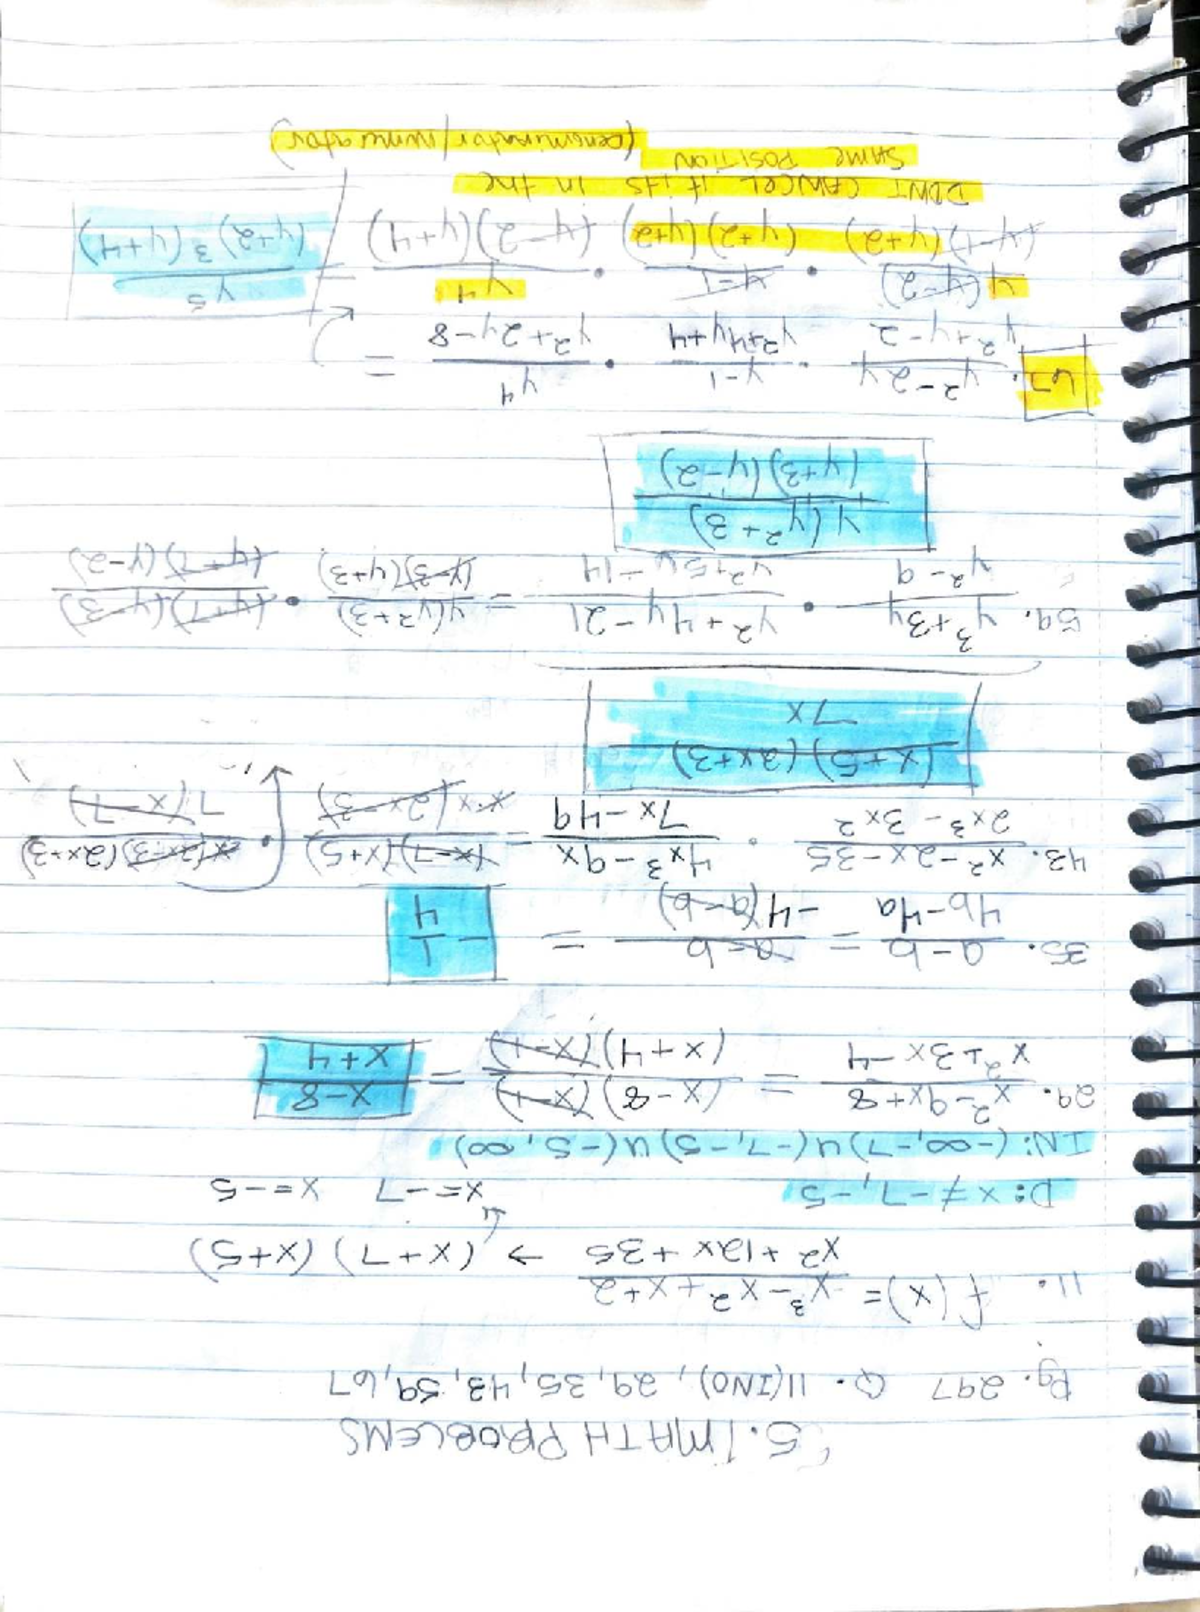 5.1 MATH PROBLEMS
Pg. 297 Q. 11(INO), 29, 35, 43, 59, 67
11. f(x) = (x³-x²+x+2)/(x²+12x+35) → (x+7)(x+5)
D: x≠-7,-5 x=-7 x=-5
IN: (-∞,-7)U(-7,-5)U(-5,∞)
29. (x²-9x+8)/(x²+3x-4) = ((x-8)(x-1))/((x+4)(x-1)) = (x-8)/(x+4)
35. (a-b)/(4b-4a) = (a-b)/(-4(a-b)) = -1/4
43. (x²-2x-35)/(2x³-3x²) · (4x³-9x)/(7x-49) = ((x-7)(x+5))/(x·x(2x-3)) · (x(2x-3)(2x+3))/(7(x-7))
((x+5)(2x+3))/(7x)
59. (y³+3y)/(y²-9) · (y²+4y-21)/(y²+5y-14) = (y(y²+3))/((y-3)(y+3)) · ((y+7)(y-3))/((y+7)(y-2))
(y(y²+3))/((y+3)(y-2))
67. (y²-2y)/(y²+y-2) · (y-1)/(y²+4y+4) · y⁴/(y²+2y-8) =
(y(y-2))/((y-1)(y+2)) · (y-1)/((y+2)(y+2)) · y⁴/((y-2)(y+4)) = y⁵/((y+2)³(y+4))
DONT CANCEL if its in the
SAME POSITION (denominator/numerator)